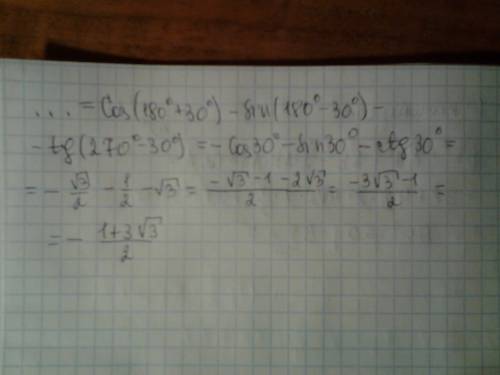 ... = Cos(180°+30°) - Sin(180°-30°) -
- tg(270°-30°) = -Cos30° - Sin30° - ctg30° =
= - √3/2 - 1/2 - √3 = (-√3-1-2√3)/2 = (-3√3-1)/2 =
= - (1+3√3)/2